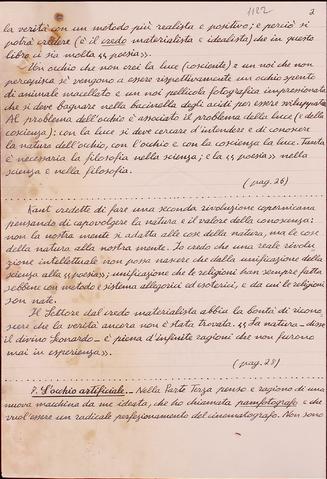 1122
2
la verità con un metodo più realista e positivo; e perciò si
potrà credere (è il credo materialista e idealista) che in questo
libro ci sia molta «poesia».
Un occhio che non crei la luce (cosciente) e un noi che non
percepisca sé vengono a essere rispettivamente un occhio spento
di animale macellato e un noi pellicola fotografica impressionata
che si deve bagnare nella bacinella degli acidi per essere sviluppata.
Al problema dell'occhio è associato il problema della luce (e della
coscienza): con la luce si deve cercare d'intendere e di conoscere
la natura dell'occhio, con l'occhio e con la coscienza la luce. Tanta
è necessaria la filosofia nella scienza; e la «poesia» nella
scienza e nella filosofia.
(pag. 26)
Kant credette di fare una seconda rivoluzione copernicana
pensando di capovolgere la natura e il valore della conoscenza:
non la nostra mente si adatta alle cose della natura, ma le cose
della natura alla nostra mente. Io credo che una reale rivolu-
zione intellettuale non possa nascere che dalla unificazione della
scienza alla «poesia»; unificazione che le religioni han sempre fatta
sebbene con metodo e sistema allegorici ed esoterici, e da cui le religioni
son nate.
Il Lettore dal credo materialista abbia la bontà di ricono-
scere che la verità ancora non è stata trovata. «La natura - disse
il divino Leonardo - è piena d'infinite ragioni che non furono
mai in esperienza».
(pag. 27)
P. L'occhio artificiale. - Nella Parte Terza penso e ragiono di una
nuova macchina da me ideata, che ho chiamata pamfotografo e che
vuol essere un radicale perfezionamento del cinematografo. Non sono